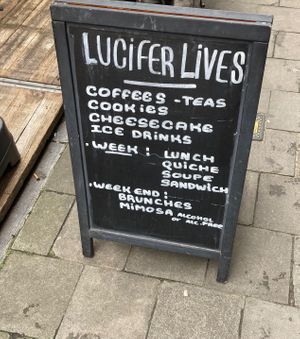 LUCIFER LIVES
COFFEES - TEAS
COOKIES
CHEESECAKE
ICE DRINKS
• WEEK : LUNCH
QUICHE
SOUPE
SANDWICH
• WEEKEND :
BRUNCHES
MIMOSA ALCOHOL
OR ALC. FREE